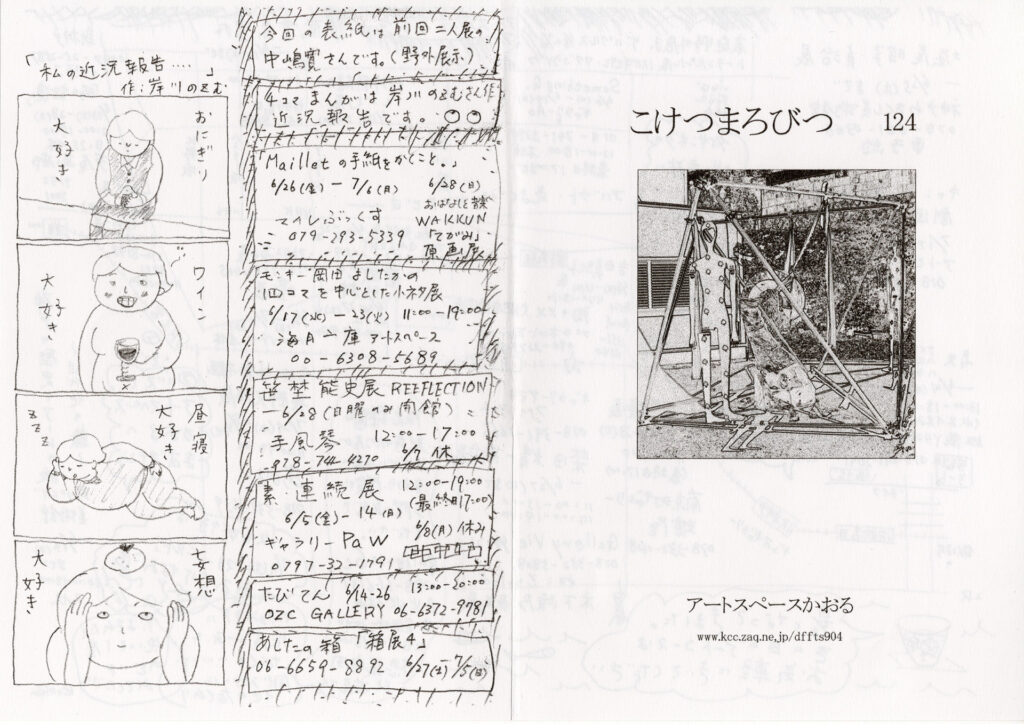 「私の近況報告‥‥」
作:岸川のぞむ
おにぎり
大好き
ワイン
大好き
昼寝
大好き
zzz
妄想
大好き
今回の表紙は前回二人展の
中嶋寛さんです。(野外展示)
4コマまんがは岸川のぞむさん作
近況報告です。
「Mailletの手紙をかくこと。」
6/26(金)ー7/6(月)
6/28(日)
おはなしと音楽
WAKKUN
「てがみ」
原画展
079-293-5339
モンキー岡田よしたかの
四コマを中心とした小ネタ展
6/17(水)ー23(火) 11:00-19:00
海月文庫アートスペース
00-6308-5689
笹埜能史展 REEFLECTION
ー6/28(日曜のみ開館)
手風琴 12:00-17:00
078-744-4270 6/7休
素・連続展 12:00-19:00
(最終日17:00)
6/5(金)-14(日)
6/8(月)休み
ギャラリーPaw
0797-32-1791
たびてん 6/14-26 13:00-20:00
OZC GALLERY 06-6372-9781
あしたの箱「箱展4」
06-6659-8892 6/27(土)-7/5(日)
こけつまろびつ 124
アートスペースかおる
www.kcc.zaq.ne.jp/dffts904